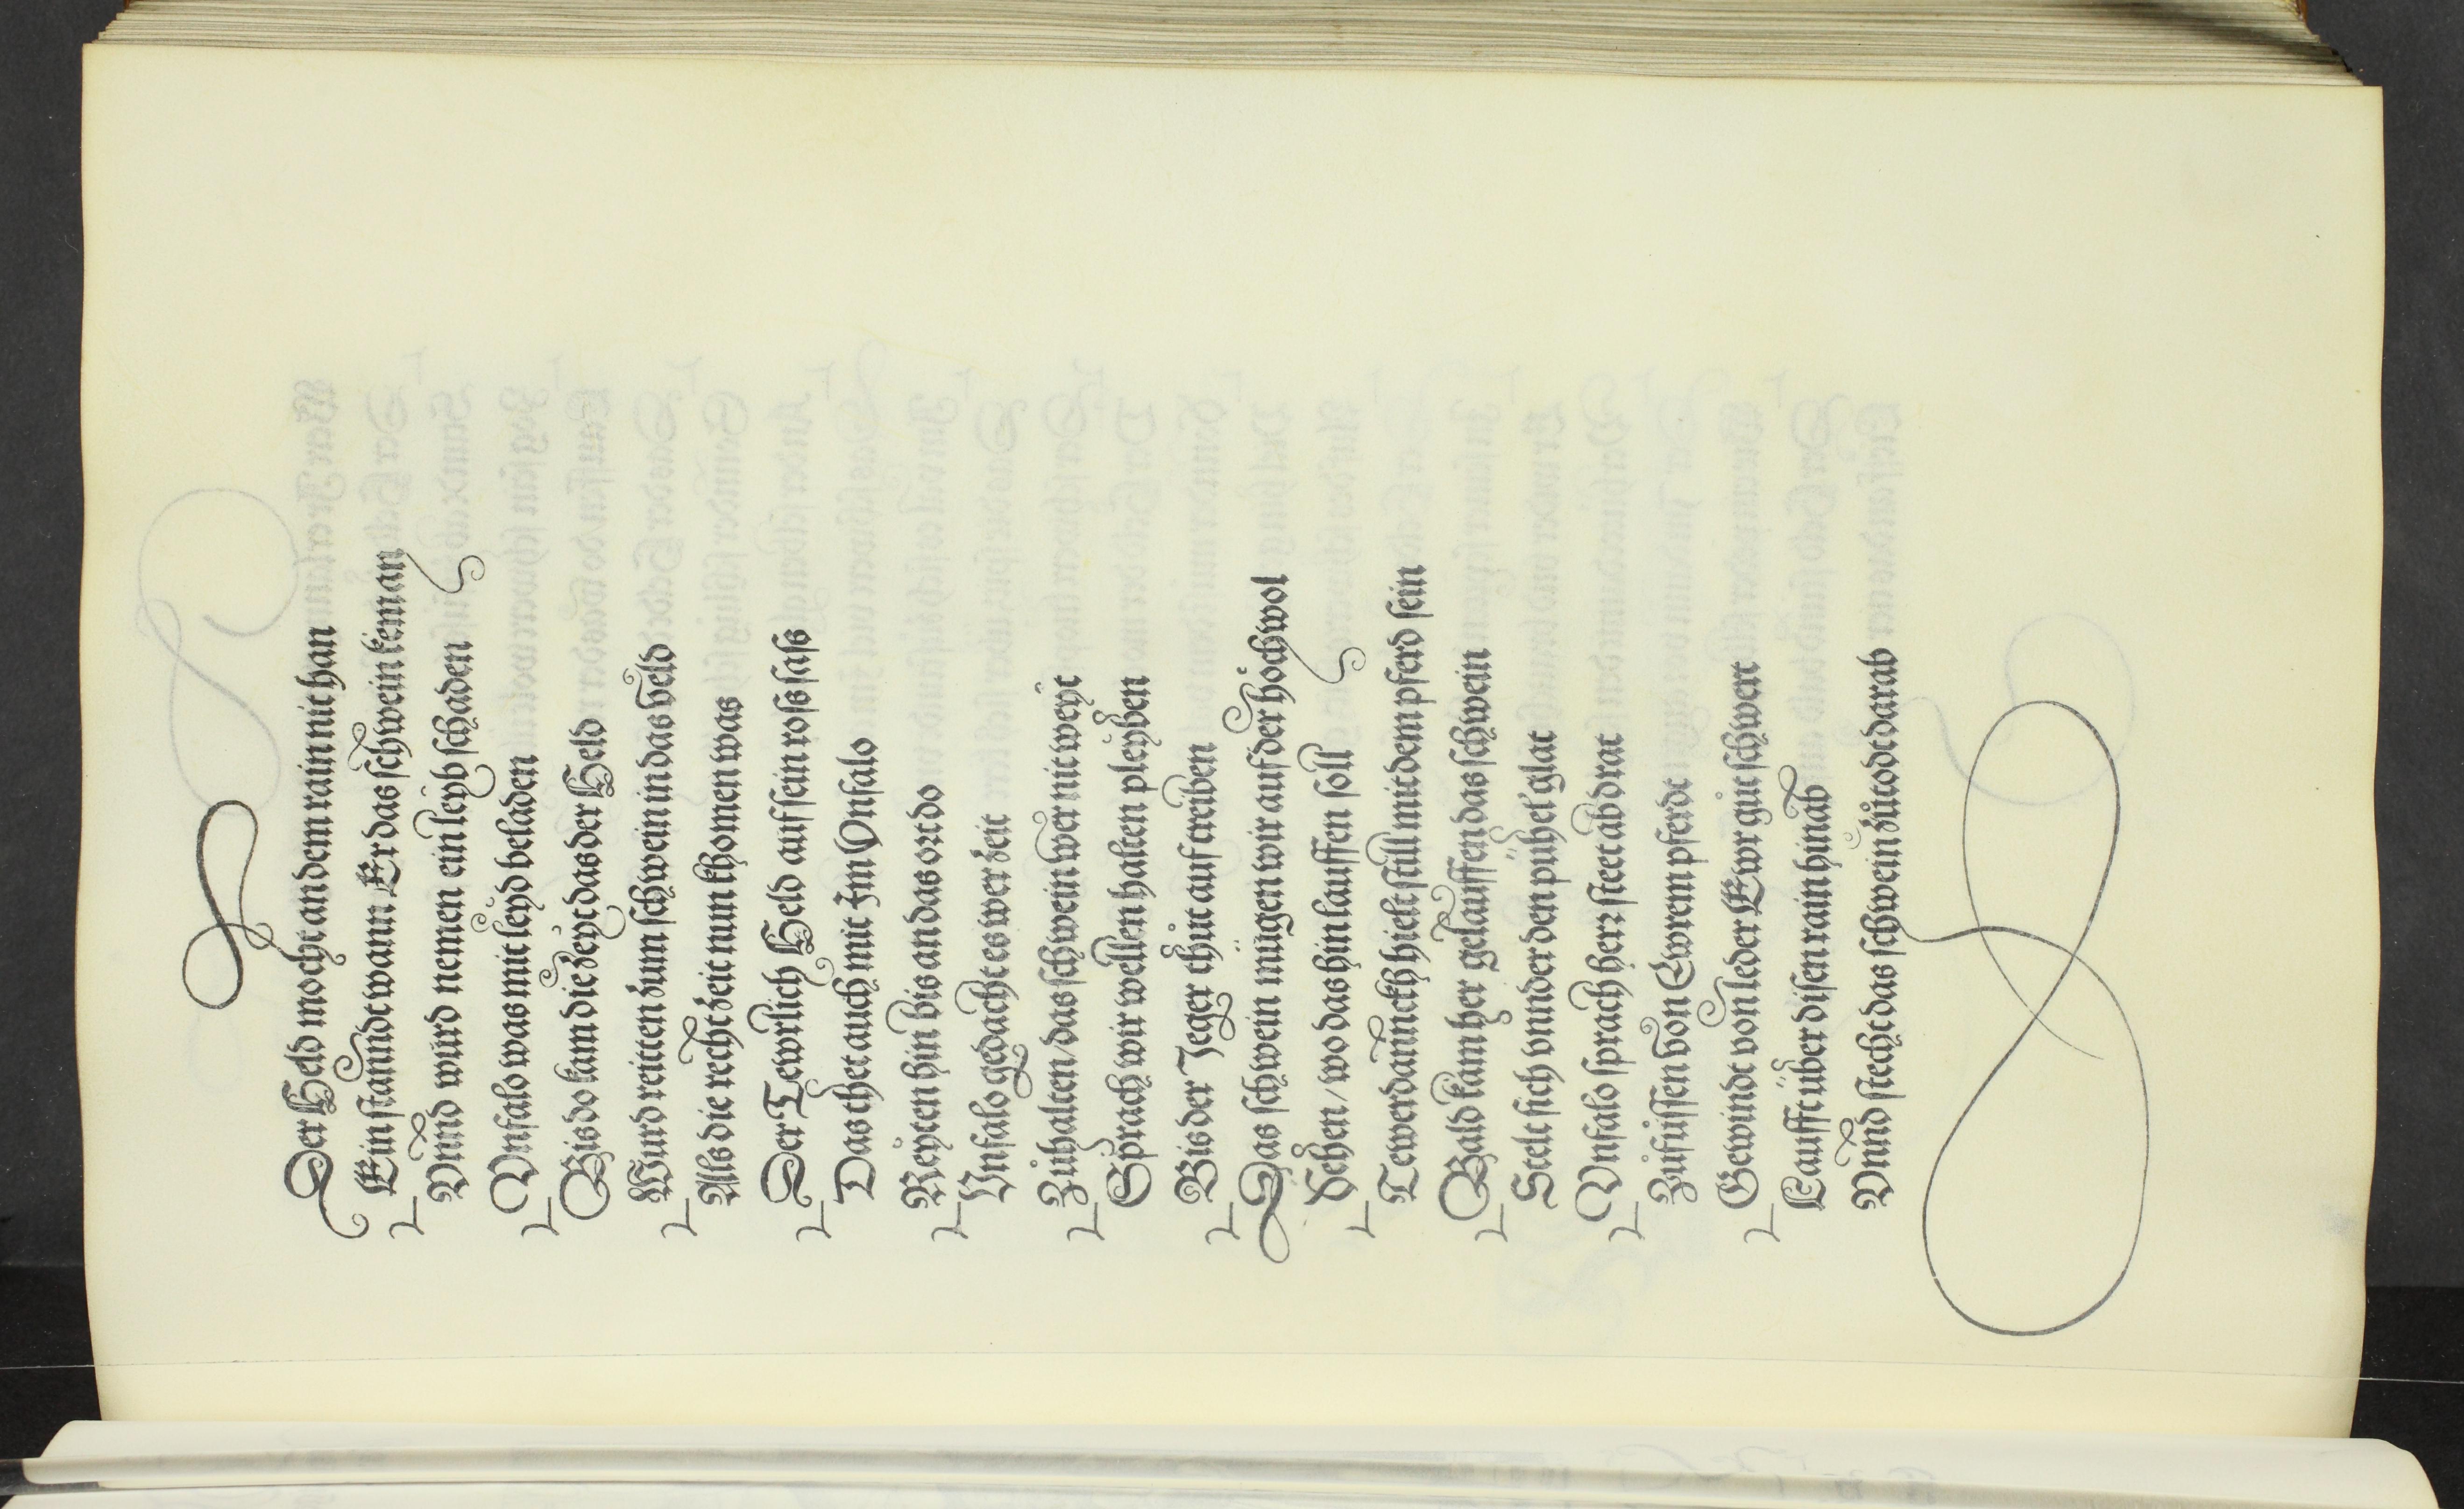 Der Held mocht an dem rain nit han
Ein stanndt wann Er das schwein kem an
Vnnd wurd nemen ein leyb schaden
Vnfalo was mit leyd beladen
Bis do kam die zeyt das der Held
Wurd reitten zum schwein in das veld
Als die recht zeit nun khomen was
Der Tewrlich Held auf sein ross sass
Das thet auch mit Im Vnfalo
Reyten hin bis an das ort do
Vnfalo gedacht es wer zeit
Zůhalten / das schwein wer nit weyt
Sprach wir wellen halten pleyben
Bis der Jeger thůt auf treiben
Das schwein mügen wir auf der höch wol
Sehen / wo das hin lauffen soll
Tewerdannckh hielt still mit dem pferd sein
Bald kam her gelauffen das schwein
Stelt sich vnnder den pühel glat
Vnfalo sprach herr steet ab drat
Zůfüssen von Ewrem pferdt
Gewindt von leder Ewr gůt schwert
Laufft über disen rain hinab
Vnnd stecht das schwein zůtodt darab